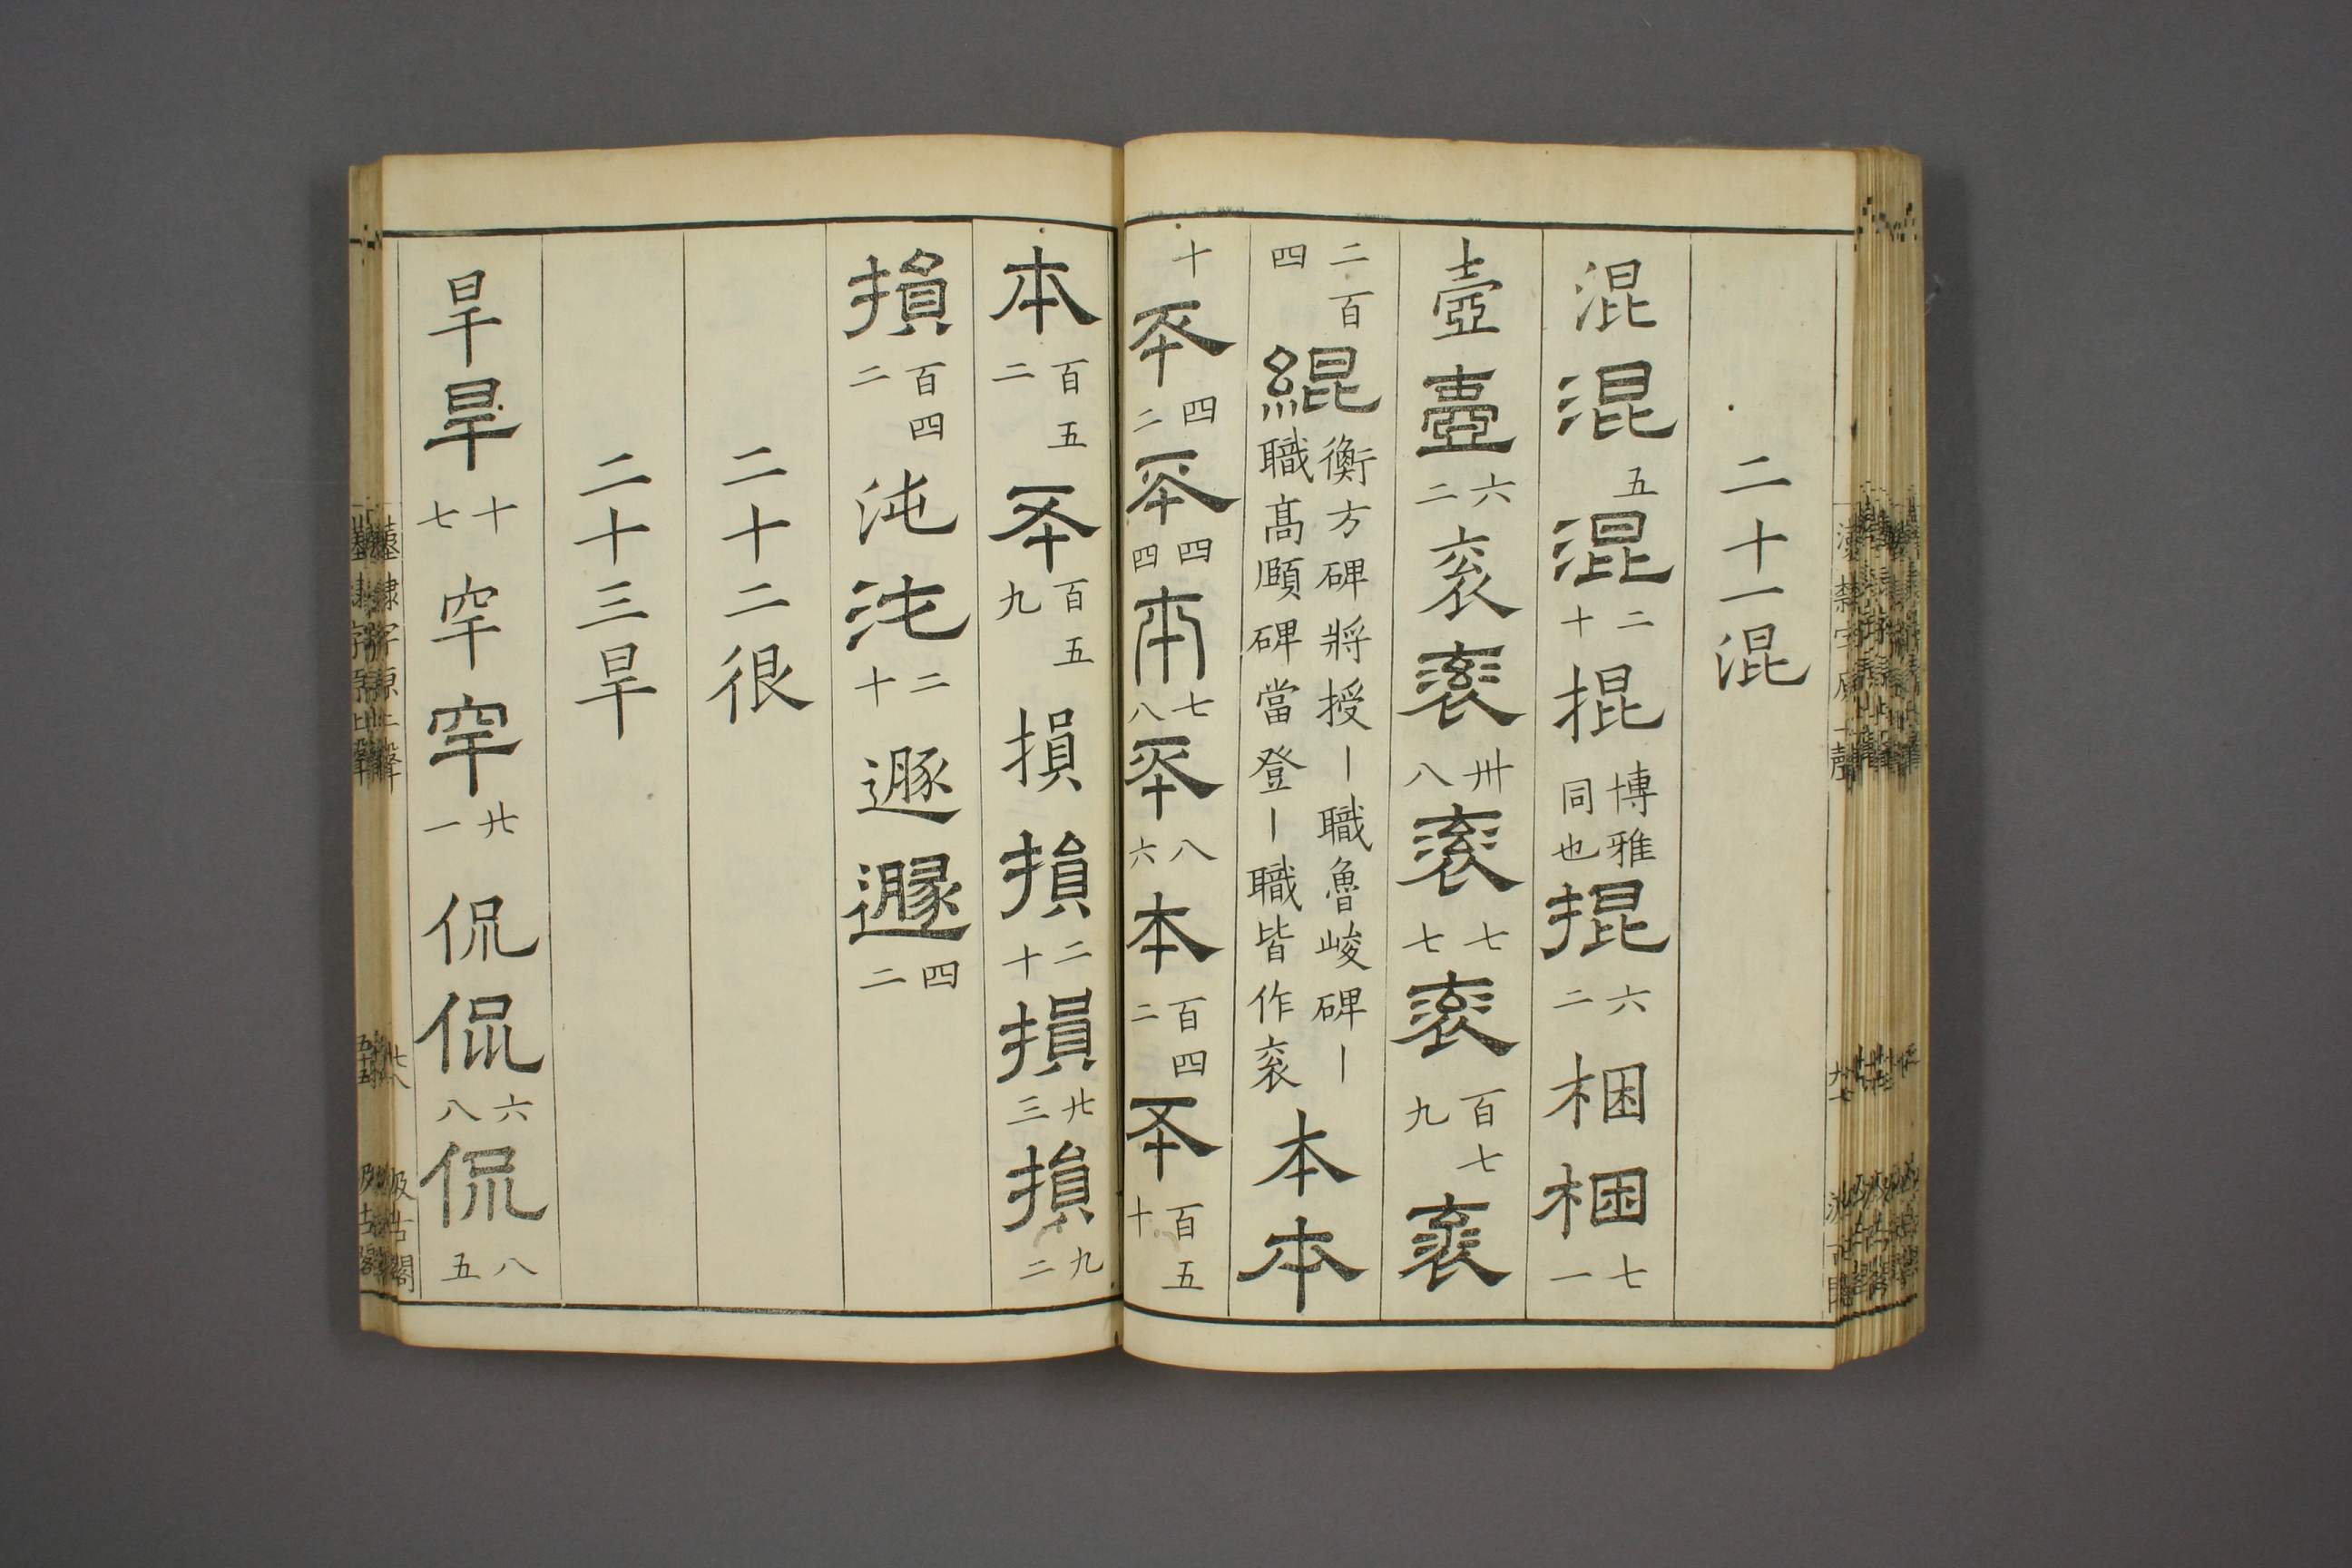 二十一混
混混五混二十掍博雅同也掍六二梱梱七一
壼壼六二衮衮卅八衮七七衮百七九衮
二百四緄衡方碑將授丨職魯峻碑丨職高頤碑當登丨職皆作衮本本
十本四二本四四本七八本八六本百四二本百五十
本百五二本百五九損損二十損廿三損九二
損百四二沌沌二十遯遯四二
二十二很
二十三旱
旱旱十七罕罕廿一侃侃六八侃八五
汲古閣